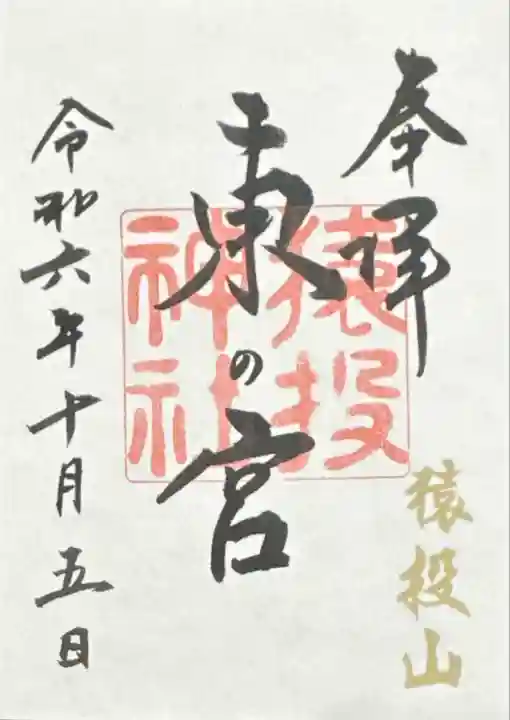 奉拝
猿投山
東の宮
猿投
神社
令和六年十月五日